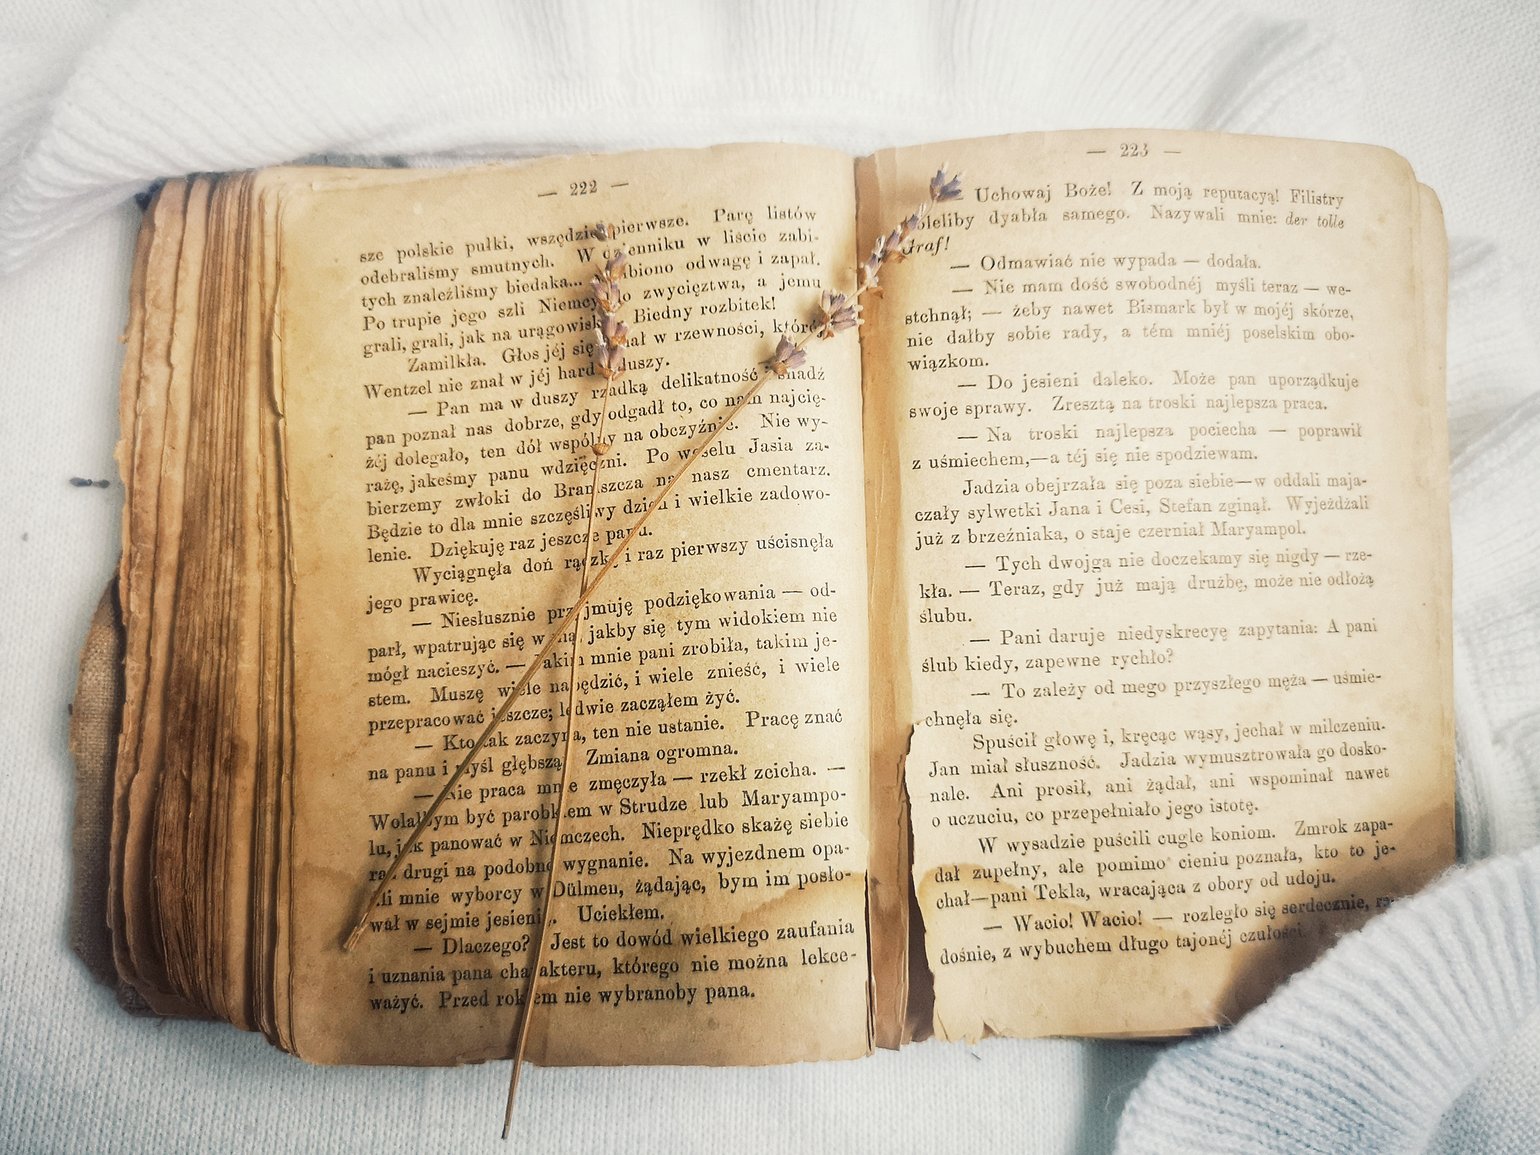 — 222 —
sze polskie pułki, wszędzie pierwsze. Parę listów
odebraliśmy smutnych. W dzienniku w liście zabi-
tych znaleźliśmy biedaka... odwagę i zapał.
Po trupie jego szli Niemcy do zwycięztwa, a jemu
grali, grali, jak na urągowisko. Biedny rozbitek!
Zamilkła. Głos jéj się w rzewności, któréj
Wentzel nie znał w jéj hardéj duszy.
— Pan ma w duszy rzadką delikatność snadź
pan poznał nas dobrze, gdy odgadł to, co nam najcię-
żéj dolegało, ten dół wspólny na obczyźnie. Nie wy-
rażę, jakeśmy panu wdzięczni. Po weselu Jasia za-
bierzemy zwłoki do Braniszcza na nasz cmentarz.
Będzie to dla mnie szczęśliwy dzień i wielkie zadowo-
lenie. Dziękuję raz jeszcze panu.
Wyciągnęła doń rączkę i raz pierwszy uścisnęła
jego prawicę.
— Niesłusznie przyjmuję podziękowania — od-
parł, wpatrując się w nią, jakby się tym widokiem nie
mógł nacieszyć. — Jakim mnie pani zrobiła, takim je-
stem. Muszę wiele napędzić, i wiele znieść, i wiele
przepracować jeszcze; ledwie zacząłem żyć.
— Kto tak zaczyna, ten nie ustanie. Pracę znać
na panu i myśl głębszą. Zmiana ogromna.
— Nie praca mnie zmęczyła — rzekł zcicha. —
Wolałbym być parobkiem w Strudze lub Maryampo-
lu, jak panować w Niemczech. Nieprędko skażę siebie
raz drugi na podobne wygnanie. Na wyjezdnem opa-
dli mnie wyborcy w Dülmen, żądając, bym im posło-
wał w sejmie jesieni... Uciekłem.
— Dlaczego? Jest to dowód wielkiego zaufania
i uznania pana charakteru, którego nie można lekce-
ważyć. Przed rokiem nie wybranoby pana.
— 223 —
Uchowaj Boże! Z moją reputacyą! Filistry
woleliby dyabła samego. Nazywali mnie: der tolle
Graf!
— Odmawiać nie wypada — dodała.
— Nie mam dość swobodnéj myśli teraz — we-
stchnął; — żeby nawet Bismark był w mojéj skórze,
nie dałby sobie rady, a tém mniéj poselskim obo-
wiązkom.
— Do jesieni daleko. Może pan uporządkuje
swoje sprawy. Zresztą na troski najlepsza praca.
— Na troski najlepsza pociecha — poprawił
z uśmiechem,—a téj się nie spodziewam.
Jadzia obejrzała się poza siebie—w oddali maja-
czały sylwetki Jana i Cesi, Stefan zginął. Wyjeżdżali
już z brzeźniaka, o staje czerniał Maryampol.
— Tych dwojga nie doczekamy się nigdy — rze-
kła. — Teraz, gdy już mają drużbę, może nie odłożą
ślubu.
— Pani daruje niedyskrecyę zapytania: A pani
ślub kiedy, zapewne rychło?
— To zależy od mego przyszłego męża — uśmie-
chnęła się.
Spuścił głowę i, kręcąc wąsy, jechał w milczeniu.
Jan miał słuszność. Jadzia wymusztrowała go dosko-
nale. Ani prosił, ani żądał, ani wspominał nawet
o uczuciu, co przepełniało jego istotę.
W wysadzie puścili cugle koniom. Zmrok zapa-
dał zupełny, ale pomimo cieniu poznała, kto to je-
chał—pani Tekla, wracająca z obory od udoju.
— Wacio! Wacio! — rozległo się serdecznie, ra-
dośnie, z wybuchem długo tajonéj czułości.